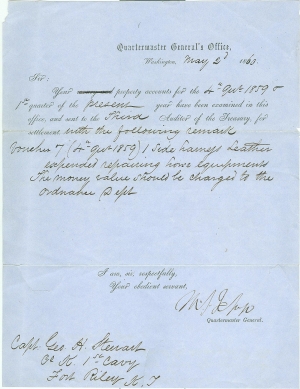 Quartermaster General's Office,
Washington, May 2d 1860.
Sir:
Your property accounts for the 4th Qr 1859 &
1st quarter of the present year have been examined in this
office, and sent to the Third Auditor of the Treasury, for
settlement with the following remark
Voucher 7 (4th Qr 1859) 1 Side harness leather
expended repairing horse equipments
The money value should be charged to the
Ordnance Dept
I am, sir, respectfully,
Your obedient servant,
Quartermaster General.
Capt Geo H. Stewart
1st Cavy
Fort Riley K. T